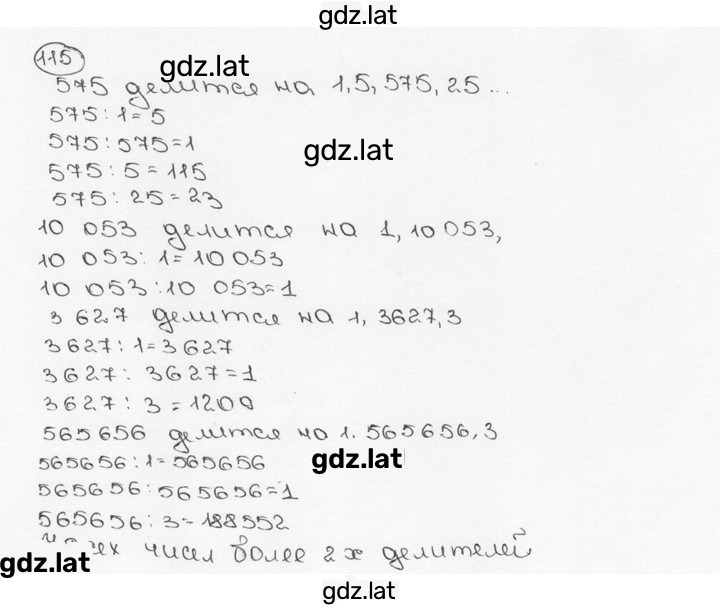 gdz.lat
115
gdz.lat
575 делится на 1,5,575,25...
575:1=5
575:575=1
gdz.lat
575:5=115
575:25=23
10 053 делится на 1,10 053,
10 053:1=10 053
10 053:10 053=1
3 627 делится на 1, 3627,3
3627:1=3627
3627:3627=1
3627:3=1209
565656 делится на 1. 565656,3
gdz.lat
565656:1=565656
565656:565656=1
565656:3=188552
чисел более 2х делителей
gdz.lat
gdz.lat